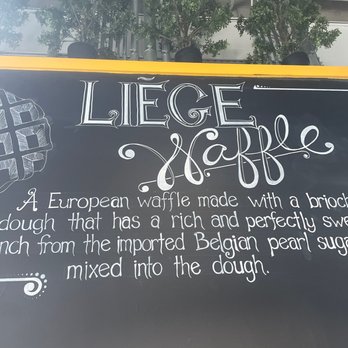 LIĒGE
Waffle
A European waffle made with a brioch
dough that has a rich and perfectly swe
nch from the imported Belgian pearl suga
mixed into the dough.